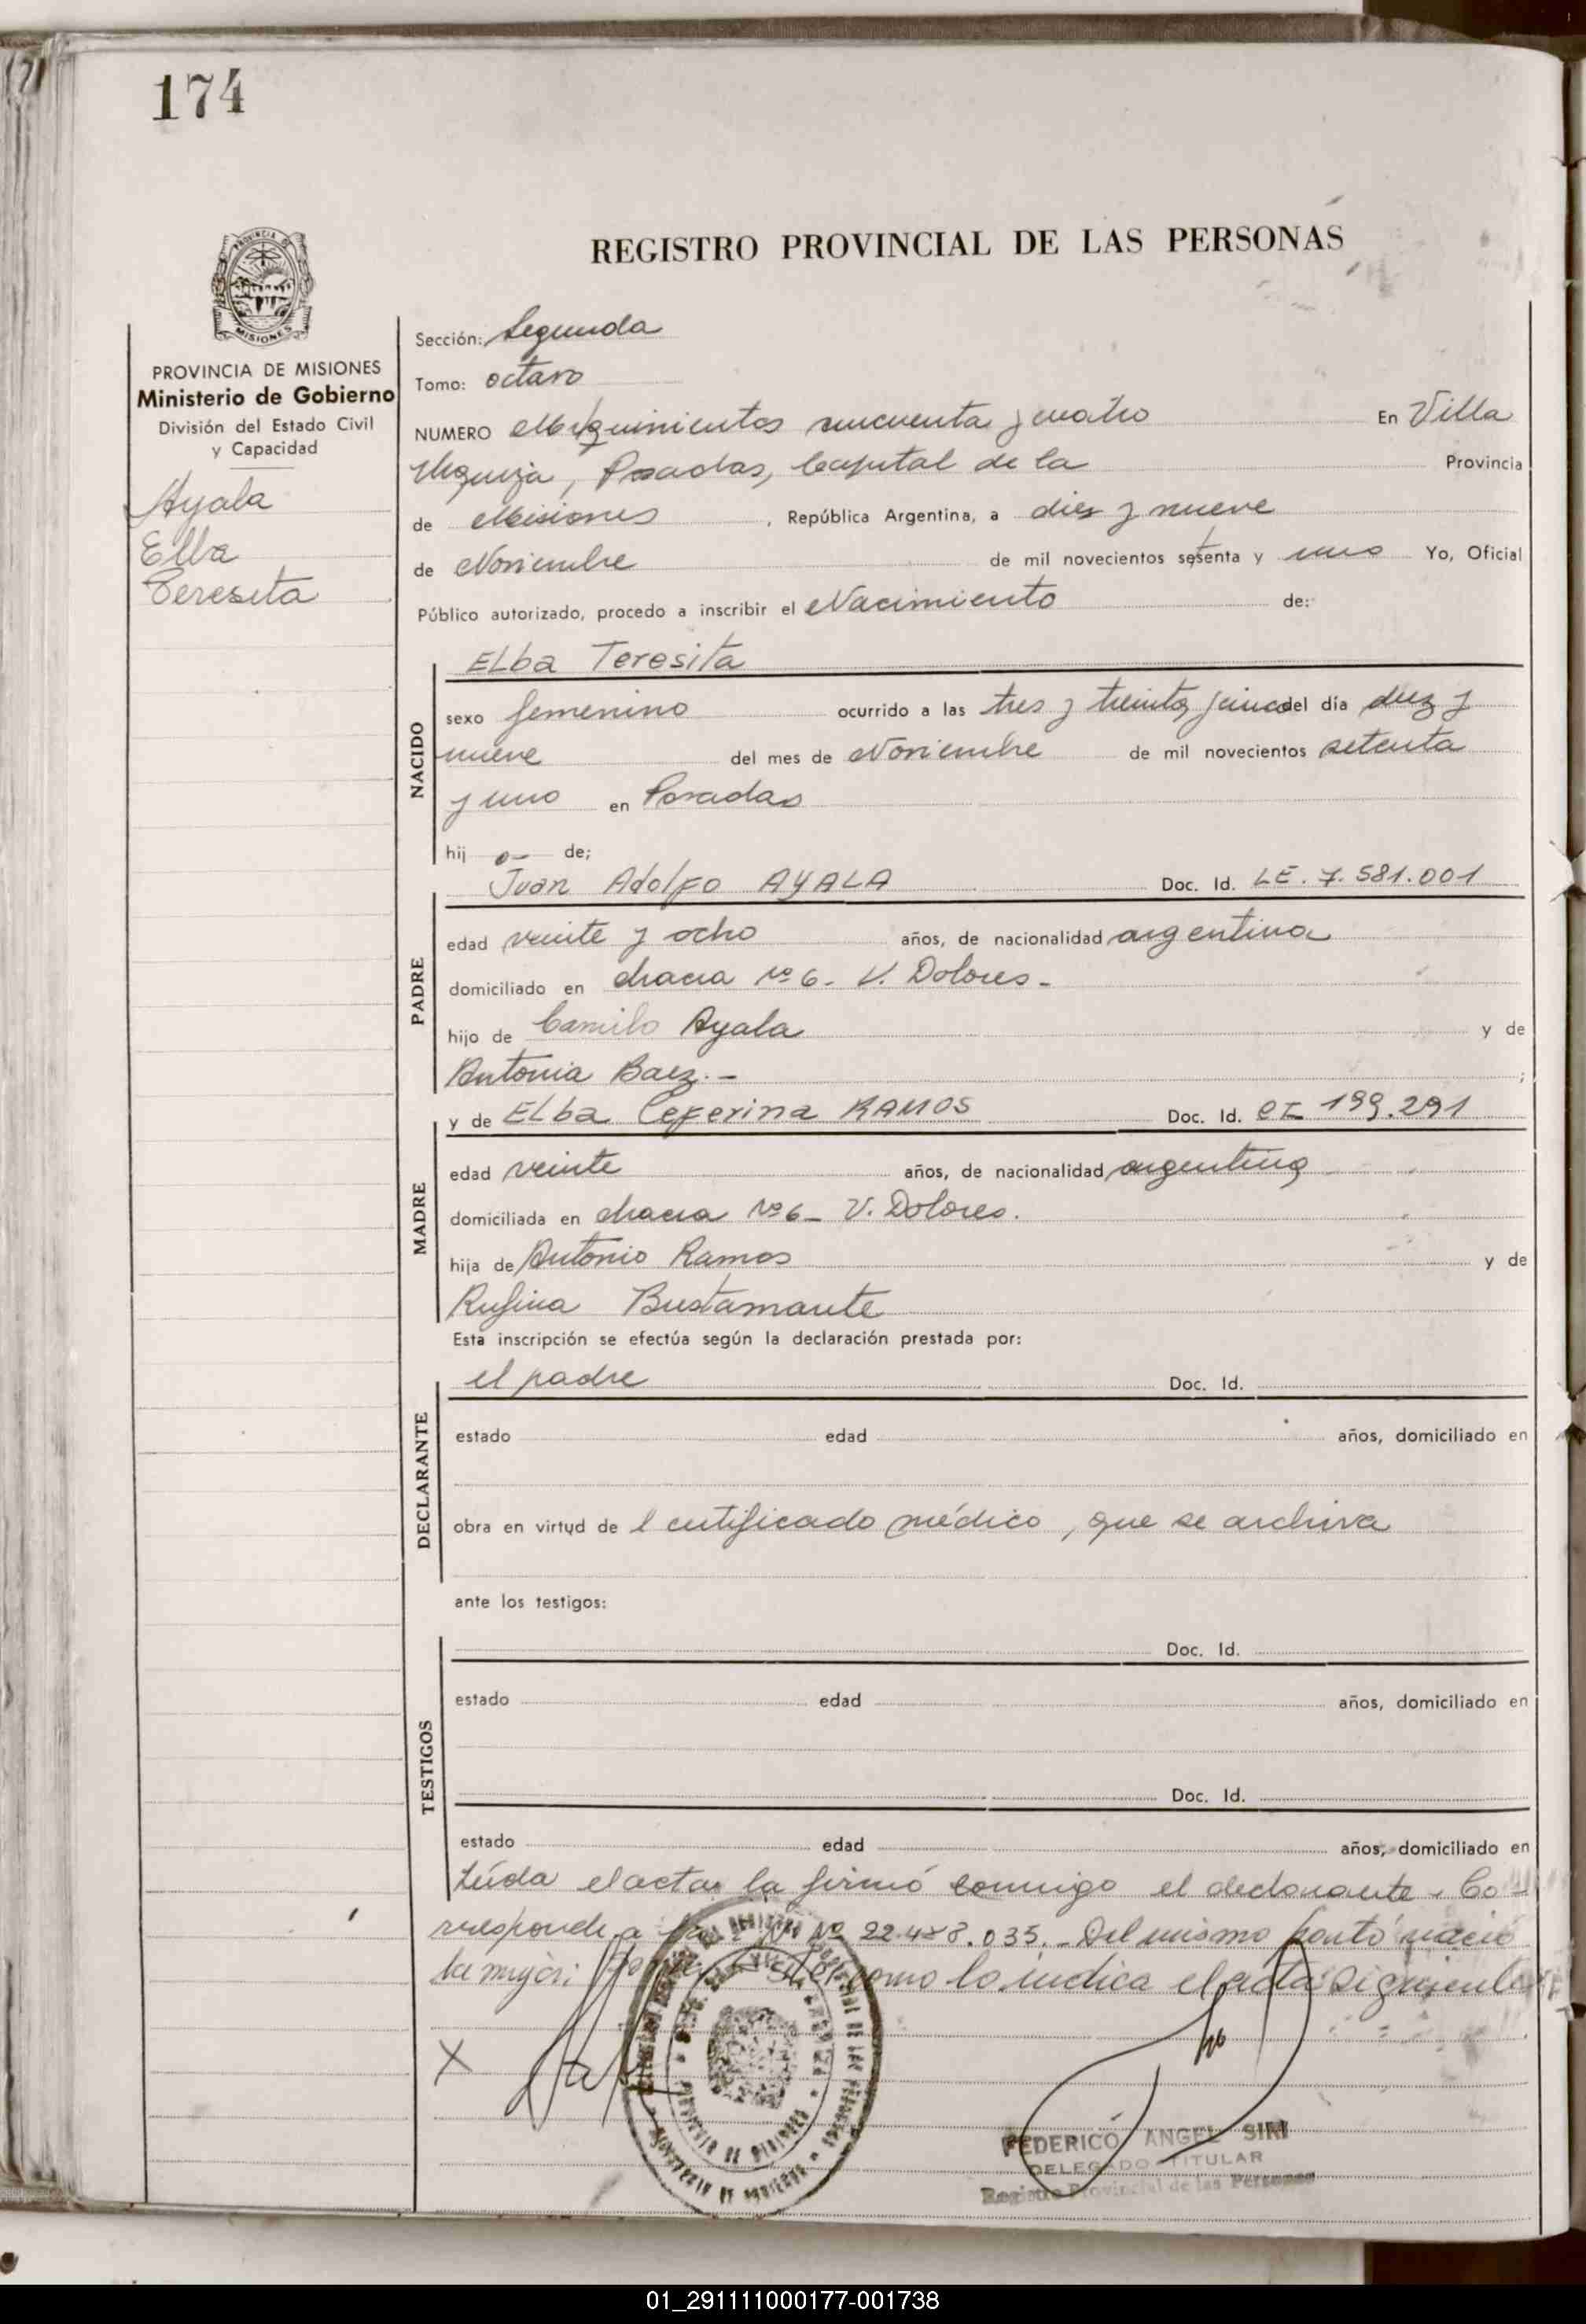 174
REGISTRO PROVINCIAL DE LAS PERSONAS
PROVINCIA DE
MISIONES
PROVINCIA DE MISIONES
Ministerio de Gobierno
División del Estado Civil
y Capacidad
Ayala
Elba
Teresita
Sección: Segunda
Tomo: octavo
NUMERO Mil quinientos cincuenta y cuatro En Villa
Urquiza, Posadas, Capital de la Provincia
de Misiones, República Argentina, a diez y nueve
de Noviembre de mil novecientos setenta y uno Yo, Oficial
Público autorizado, procedo a inscribir el Nacimiento de:
ELba Teresita
NACIDO
sexo femenino ocurrido a las tres y treinta y cinco del día diez y
nueve del mes de Noviembre de mil novecientos setenta
y uno en Posadas
hij a de;
Juan Adolfo AYALA Doc. Id. LE. 7.581.001
PADRE
edad veinte y ocho años, de nacionalidad argentina
domiciliado en chacra Nº 6 - V. Dolores -
hijo de Camilo Ayala y de
Antonia Baez. - ;
y de ELba Ceferina RAMOS Doc. Id. CI 199.291
MADRE
edad veinte años, de nacionalidad argentina
domiciliada en chacra Nº 6 - V. Dolores.
hija de Antonio Ramos y de
Rufina Bustamante
Esta inscripción se efectúa según la declaración prestada por:
el padre Doc. Id.
DECLARANTE
estado edad años, domiciliado en
obra en virtud de l certificado médico, que se archiva
ante los testigos:
Doc. Id.
TESTIGOS
estado edad años, domiciliado en
Doc. Id.
estado edad años, domiciliado en
Leída el acta la firmó conmigo el declarante. Co-
rresponde a Nº 22.488.035. - Del mismo parto nació
la mujer: como lo indica el acta siguiente
X
FEDERICO ANGEL SIRI
DELEGADO TITULAR
Registro Provincial de las Personas
01_291111000177-001738